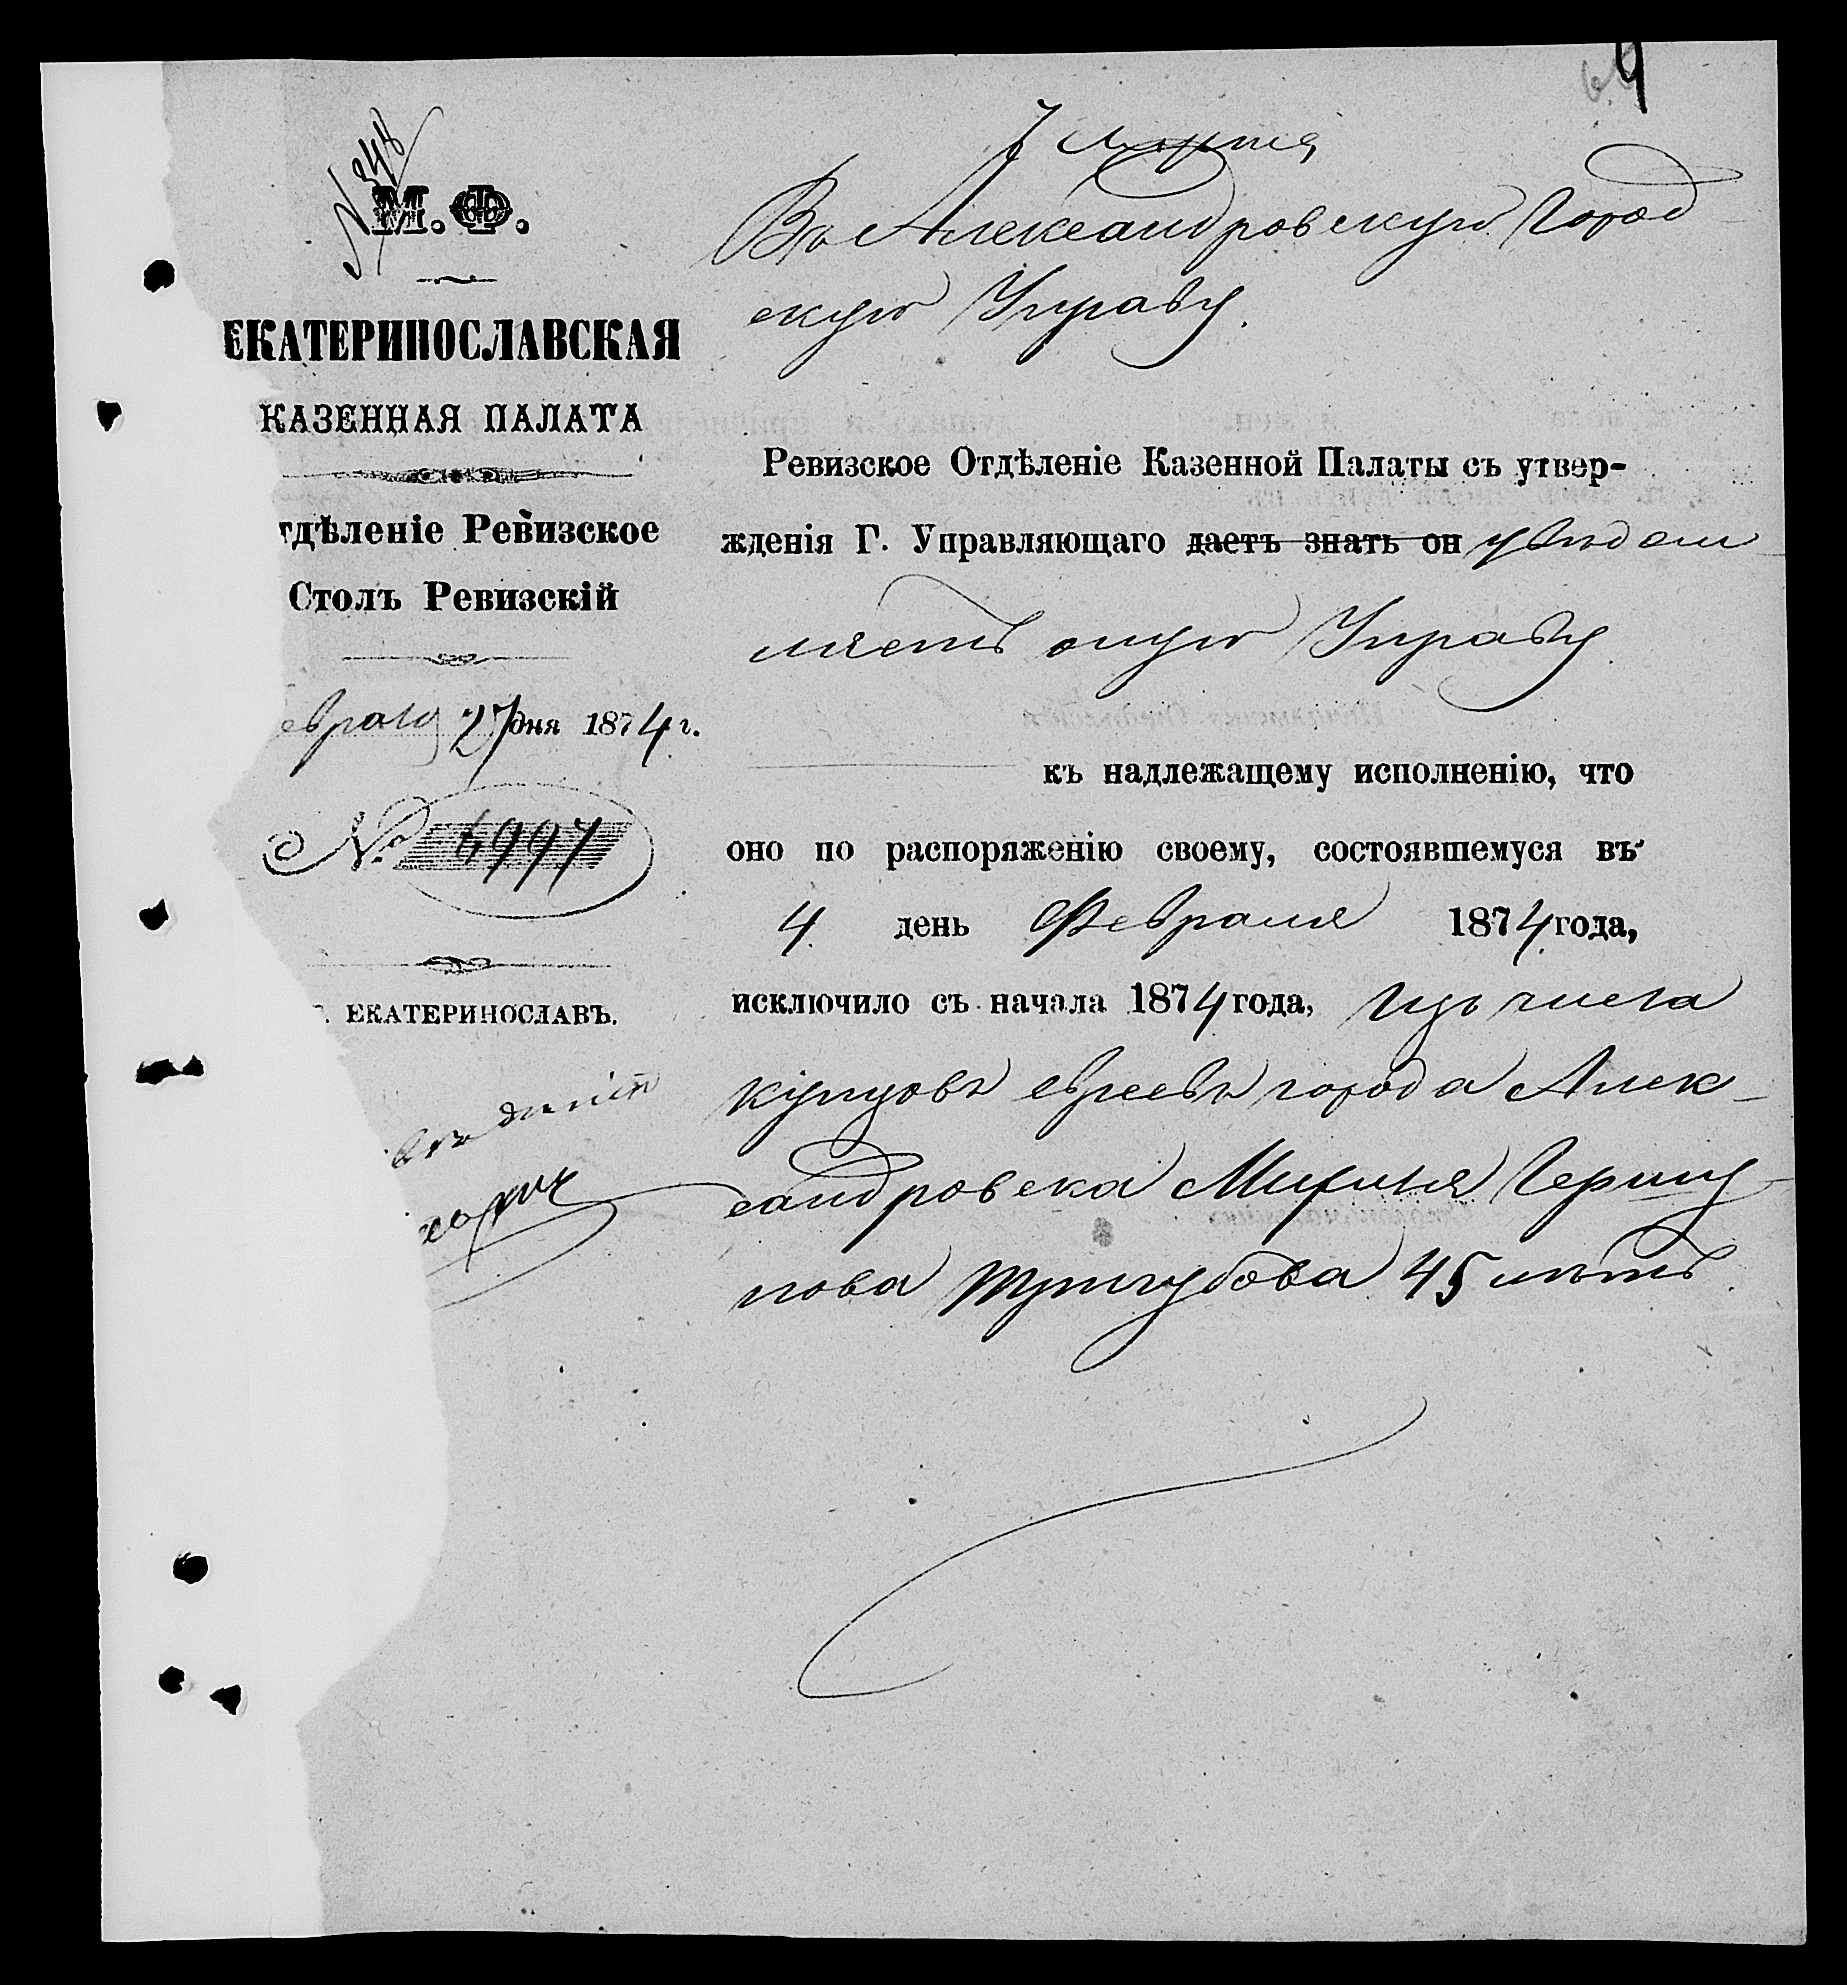 9
N 348
М. Ф.
ЕКАТЕРИНОСЛАВСКАЯ
КАЗЕННАЯ ПАЛАТА
тдѣленіе Ревизское
Столъ Ревизскій
евраля 27 дня 1874 г.
№ 6997
Г. ЕКАТЕРИНОСЛАВЪ.
7 марта
Въ Александровскую Город
скую Управу.
Ревизское Отдѣленіе Казенной Палаты съ утвер-
жденія Г. Управляющаго даетъ знать он увѣдом
ляетъ оную Управу
къ надлежащему исполненію, что
оно по распоряженію своему, состоявшемуся въ
4 день Февраля 1874 года,
исключило съ начала 1874 года, изъ числа
купцовъ евреевъ города Алек-
сандровска
45 лѣтъ.